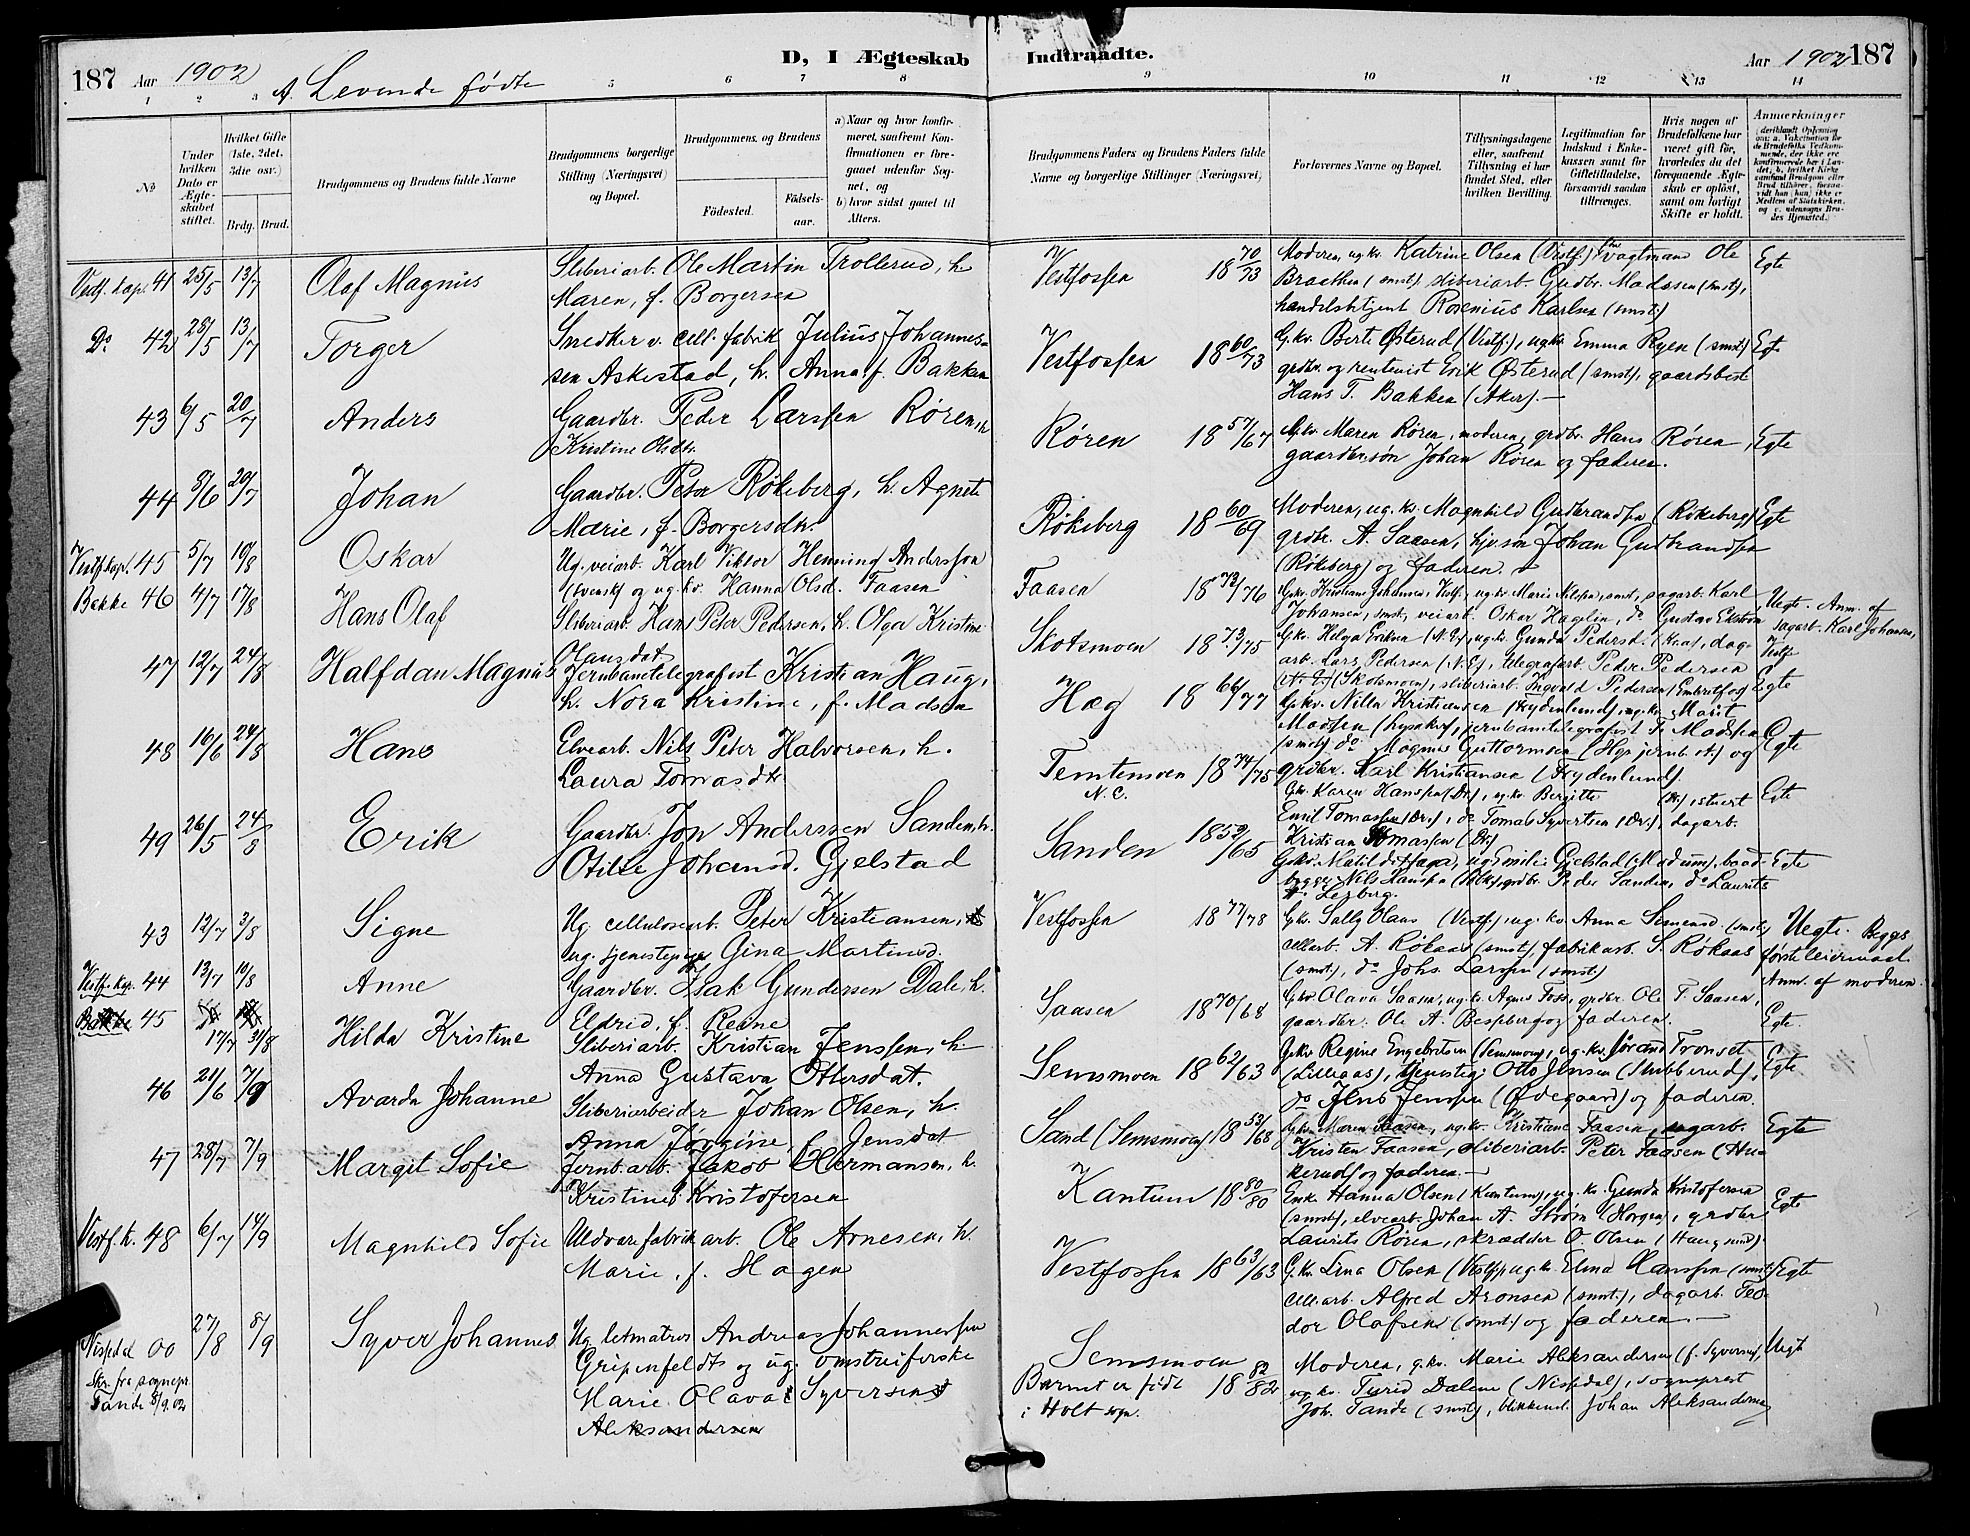 187 Aar 1902 A. Levende fødte
D, I Ægteskab Indtraadte.
Aar 1902 187
1 2 3 5 6 7 8 9 10 11 12 13 14
No
Under hvilken Dato er Ægteskabet stiftet.
Hvilket Gifte (1ste, 2det, 3die osv.)
Brdg. Brud.
Brudgommens og Brudens fulde Navne
Brudgommens borgerlige Stilling (Næringsvei) og Bopæl.
Brudgommens og Brudens
Födested.
Födselsaar.
a) Naar og hvor konfirmeret, saafremt Konfirmationen er foregaaet udenfor Sognet, og
b) hvor sidst gaaet til Alters.
Brudgommens Faders og Brudens Faders fulde Navne og borgerlige Stillinger (Næringsvei)
Forlovernes Navne og Bopæl.
Tillysningsdagene eller, saafremt Tillysning ei har fundet Sted, efter hvilken Bevilling.
Legitimation for Indskud i Enkekassen samt for Giftetilladelse, forsaavidt saadan tiltrænges.
Hvis nogen af Brudefolkene har været gift før, hvorledes da det foregaaende Ægteskab er opløst, samt om lovligt Skifte er holdt.
Anmerkninger
Vestf. kap. 41 25/5 13/7 Olaf Magnus
Sliberiarb. Ole Martin Trollerud, h.
Maren, f. Borgersen
Vestfossen 18 70/73
Moderen, ug.kv. Katrine Olsen (Vestf.) vagtmand Ole
Braathen (smst.) sliberiarb. Gudbr. Madssen (smst.),
handelsbetjent Rosenius Karlsen (smst.)
Egte
Do 42 28/5 13/7 Torger
Snedker v. cell. fabrik Julius Johannes-
sen Askestad, h. Anna f. Bakken
Vestfossen 18 60/73
G.kv. Berte Østerud (Vestf.), ugkv. Emma Ryen (smst.)
grdbr. og rentenist Erik Østerud (smst.), gaardbest
Hans T. Bakken (Aker).
Egte
43 6/5 20/7 Anders
Gaardbr. Peder Larssen Røren, h
Kristine Olsdtr.
Røren 18 57/67
G.kv. Maren Røren, moderen, grdbr. Hans Røren,
gaardbr.søn Johan Røren og faderen.
Egte
44 8/6 20/7 Johan
Gaardbr. Peter Røkeberg, h. Agnete
Marie, f. Borgersdtr.
Røkeberg 18 60/69
Moderen, ug.kv. Magnhild Gudbrandsen (Røkeberg)
grdbr. A. Saasen, hjv.søn Johan Gudbrandsen
(Røkeberg) og faderen.
Egte
Vestf. kap. 45 5/7 10/8 Oskar
Ug. veiarb. Karl Viktor Henning Andersson
(svensk) og ug.kv. Hanna Olsd. Faasen
Faasen 18 72/76
Johansen, smst, veiarb. Oskar Haglin, do Gustav Ekstrøm
Uegte. Anm. af
sagarb. Karl Johansen,
Vestf.
Bakke 46 4/7 17/8 Hans Olaf
Sliberiarb. Hans Peter Pedersen, h. Olga Kristine
Olausdat
Skotsmoen 18 73/75
G.kv. Helga Eriksen (N.E.), ug.kv. Gunda Pedersd. (Haa), dag-
arb. Lars Pedersen (N.E.), telegrafarb. Peder Pedersen
(Skotsmoen), sliberiarb. Ingvald Pedersen (Embretfos)
Egte
47 12/7 24/8 Halfdan Magnus
Jernbanetelegrafist Kristian Haug,
h. Nora Kristine, f. Madsen
Hæg 18 66/77
G.kv. Nilla Kristiansen (Frydenlund), ug.kv. Marit
Madsen (Lysaker), jernbanetelegrafist Fr. Madsen
(smst) do. Magnus Guttormsen (Hgs jernb.st.) og
grdbr. Karl Kristiansen (Frydenlund).
Egte
48 16/6 24/8 Hans
Elvearb. Nils Peter Halvorsen, h.
Laura Tomasdtr.
Temtemoen N.E. 18 74/75
G.kv. Karen Hanssen (Dr.), ug.kv. Bergitte (Dr.), stuert
Emil Tomassen (Dr.), do Tomas Syvertsen (Dr.), dagarb.
Kristian Tomassen (Dr.)
Egte
49 26/5 24/8 Erik
Gaardbr. Jon Anderssen Sanden, h.
Otilie Johansd. Gjelstad
Sanden 18 59/65
G.kv. Matilde Haga, ug Emilie Gjelstad (Modum), baad-
bygger Nils Hanssen (Bakke), grdbr. Peder Sanden, do Laurits
Lerberg.
Egte
43 12/7 3/8 Signe
Ug. cellulosearb. Peter Kristiansen,
ug. tjenestepige Gina Martinsd.
Vestfossen 18 77/78
G.kv. Sally Olaus (Vestf.), ug.kv. Anna Simensd (smst.)
cellarb. A. Røkaas (smst.), fabrikarb. S. Røkaas
(smst.), do Johs. Larssen (smst.)
Uegte. Begges
første leiermaal
Anm. af moderen.
Vestf. kap. 44 13/7 10/8 Anne
Gaardbr. Isak Gundersen Dale, h.
Eldrid, f. Reine
Saasen 18 70/68
G.kv. Olava Saasen, ug.kv. Agnes Foss, grdbr. Ole T. Saasen,
gaardbr. Ole A. Bespberg og faderen.
Egte.
Bakke 45 17/7 31/8 Hilda Kristine
Sliberiarb. Kristian Jenssen, h
Anna Gustava Ottersdat.
Semsmoen 18 62/63
G.kv. Regine Engebretsen (Semsmoen), ug.kv. Jørand Tronset
(Lilleaas), tjenestegj. Otto Jensen (Stubberud),
do Jens Jenssen (Ødegaard) og faderen.
Egte
46 21/6 7/9 Avarda Johanne
Sliberiarbeider Johan Olsen, h.
Anna Jørgine, f. Jensdat
Sand (Semsmoen) 18 53/68
G.kv. Maren Faasen, ug.kv. Kristiane Faasen, sagarb.
Kristen Faasen, sliberiarb. Peter Faasen (Hu-
kerud) og faderen.
Egte
47 28/7 7/9 Margit Sofie
Jernb.arb. Jakob Hermansen, h.
Kristine Kristofersen
Kantum 18 80/80
Enke Hanna Olsen (Kantum), ug.kv. Gunda Kristofersen
(smst), elvearb. Johan A. Strøm (Horgen), grdbr
Laurits Røren, skrædder O. Olsen (Haugsund).
Egte
Vestf. k. 48 6/7 14/9 Magnhild Sofie
Uldvarefabrikarb. Ole Arnesen, h.
Marie, f. Hagen
Vestfossen 18 63/63
G.kv. Lina Olsen (Vestf.) ug.kv. Elma Hanssen (smst)
cell.arb. Alfred Aronsen (smst.), dagarb. Teo-
dor Olafsen (smst.) og faderen.
Egte
Nispdal 00 27/8 8/9 Syver Johannes
Skr. fra sognepr.
Tande 8/9.02
Ug. letmatros Andreas Johannessen
Gripenfeldt og ug. omstreiferske
Marie Olava Syversen
Aleksandersen
Semsmoen
Barnet er født 18 82/82
i Holt sogn.
Moderen, g.kv. Marie Aleksandersen (f. Syversen),
ug.kv. Turid Dalene (Nissedal), sogneprest
Joh. Tande (smst), blikkensl. Johan Aleksandersen
Uegte